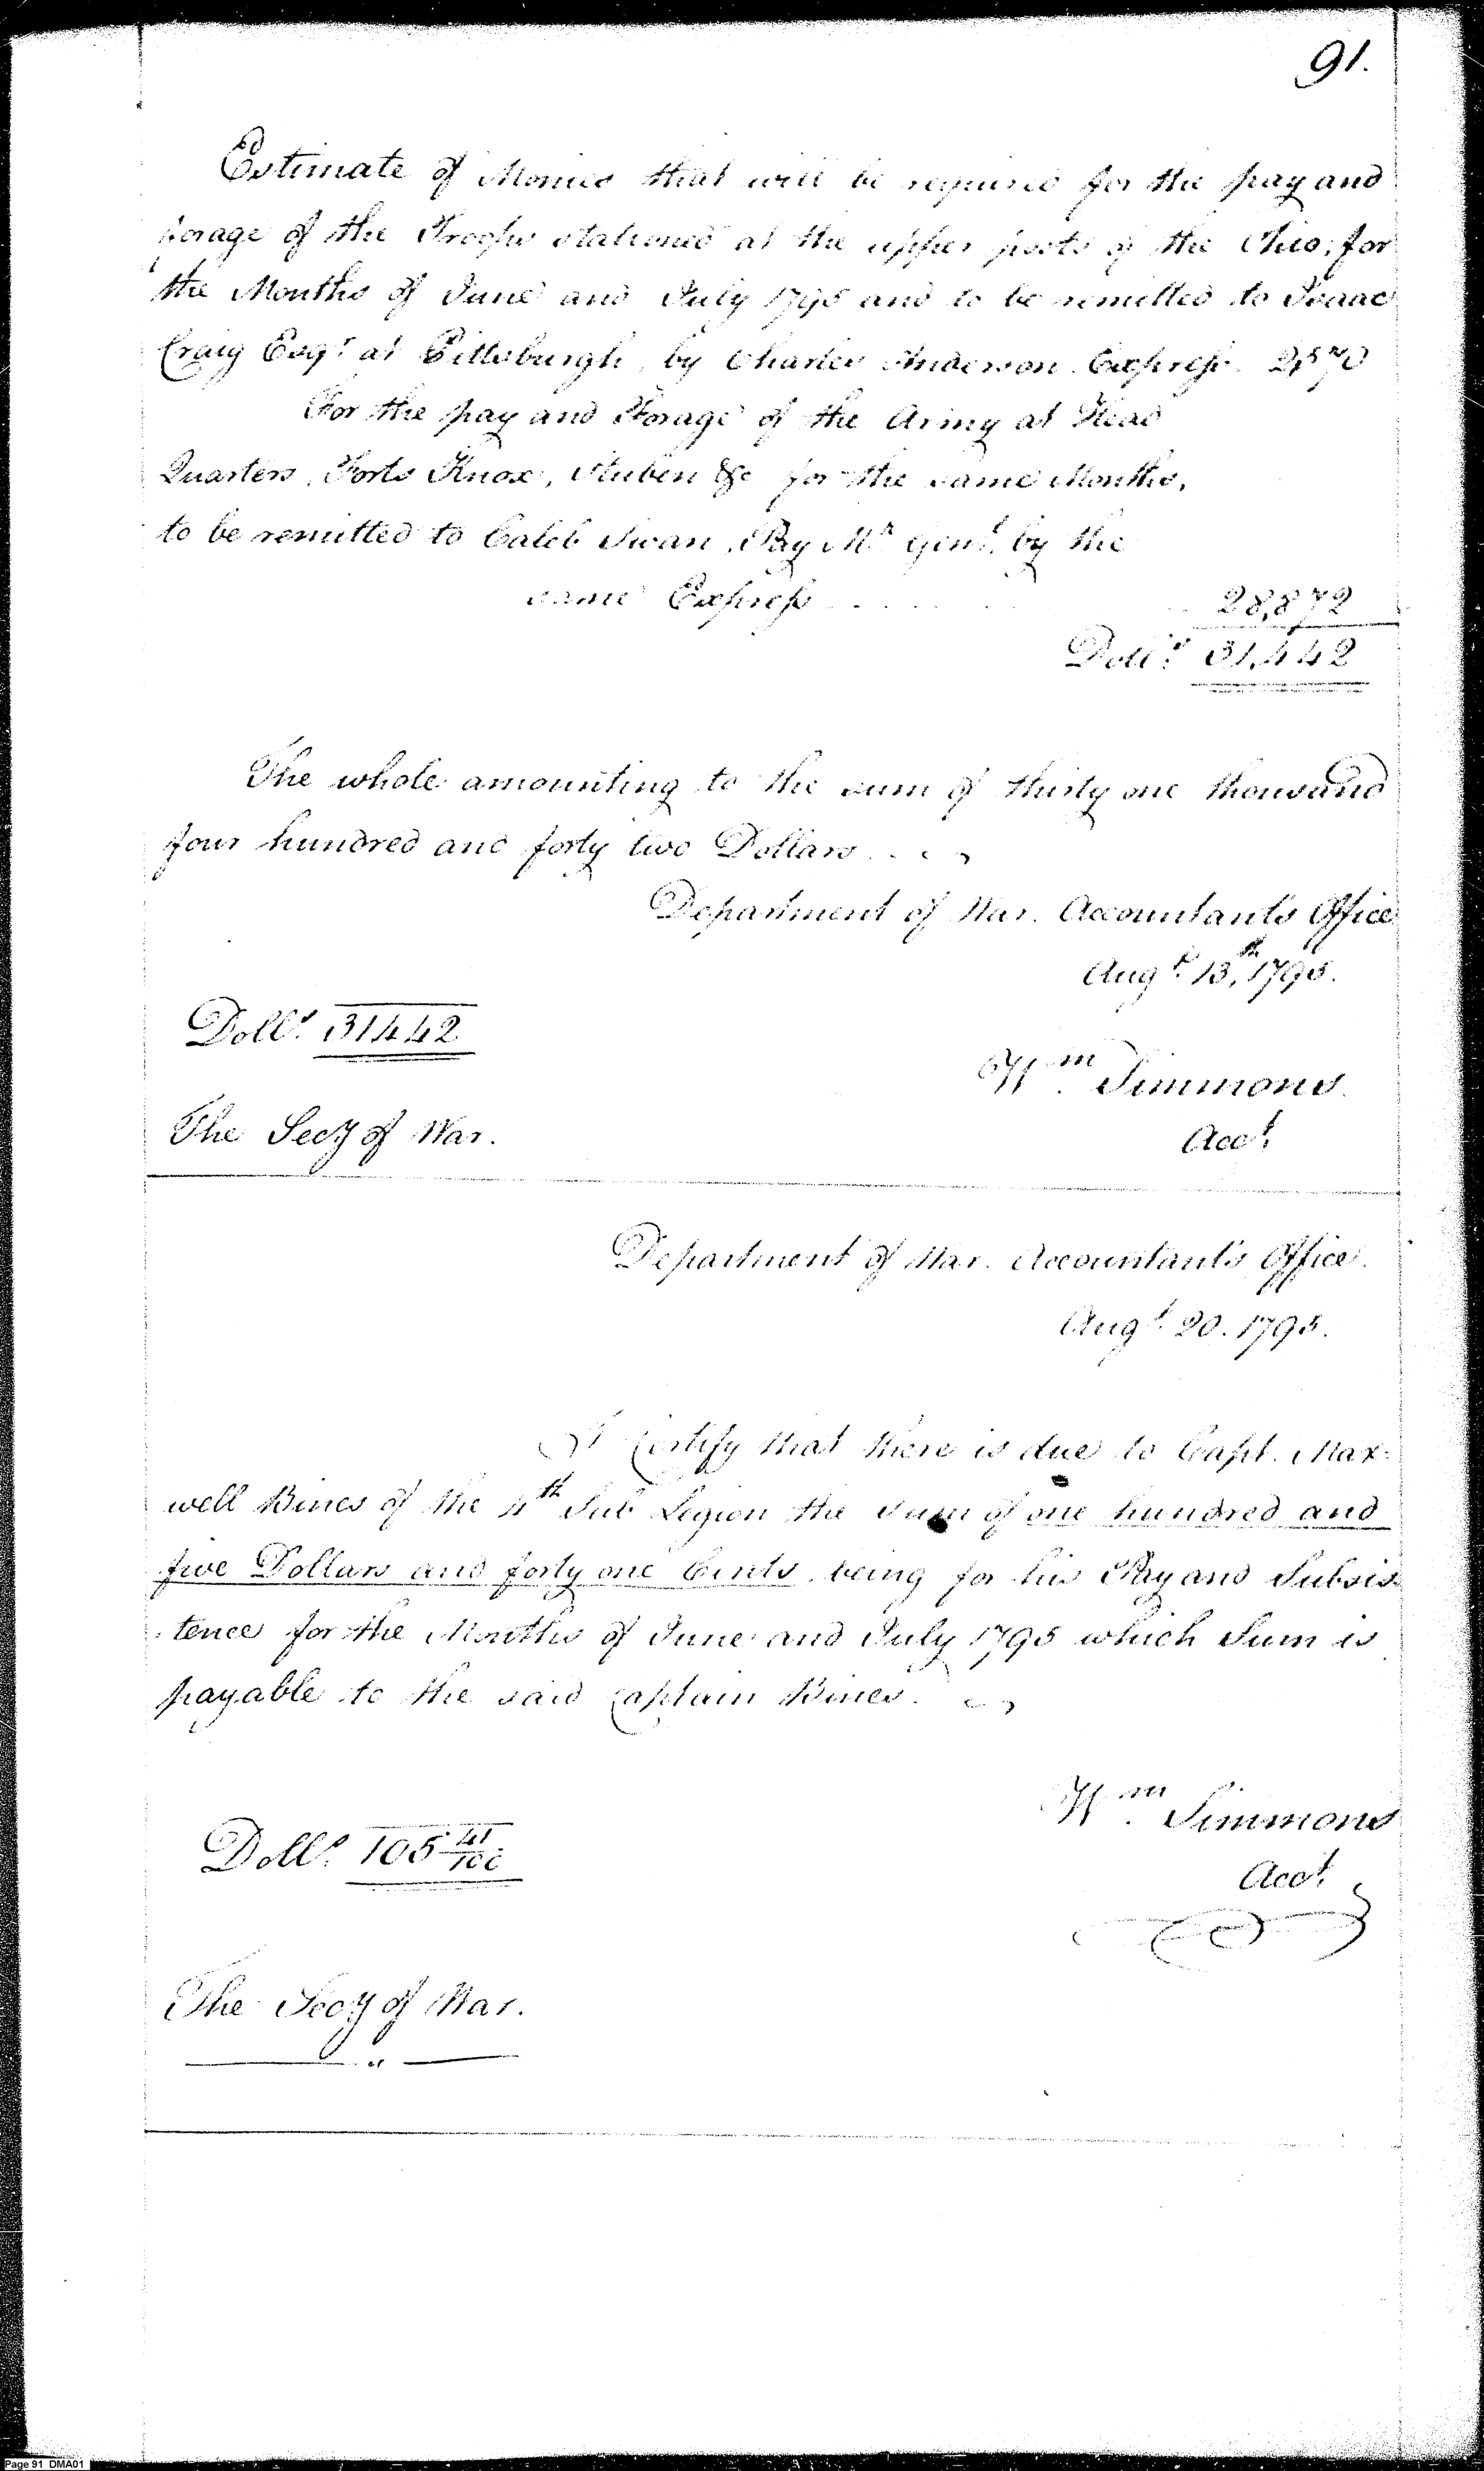 91.
Estimate of Monies that will be required for the pay and
forage of the Troops stationed at the upper posts of the Ohio, for
the Months of June and July 1795 and to be remitted to Isaac
Craig Esqr. at Pittsburgh, by Charles Anderson Express. 2,570
For the pay and Forage of the Army at Head
Quarters, Forts Knox, Stuben &c for the same Months,
to be remitted to Caleb Swan, Pay Mr. Genl. by the
same Express . . . . . 28,872
Dolls. 31,442
The whole amounting to the sum of thirty one thousand
four hundred and forty two Dollars . .
Department of War. Accountant's Office
Augt. 13th, 1795.
Dolls. 31442
Wm. Simmons.
The Secy of War.
Acct.
Department of War. Accountant's Office.
Augt. 20. 1795.
I Certify that there is due to Capt. Max=
well Bines of the 4th Sub Legion the sum of one hundred and
five Dollars and forty one Cents, being for his Pay and Subsis=
=tence for the Months of June and July 1795 which Sum is
payable to the said Captain Bines.
Wm. Simmons
Dolls. 105 41/100
Acct.
The Secy of War.
Page 91 DMA01